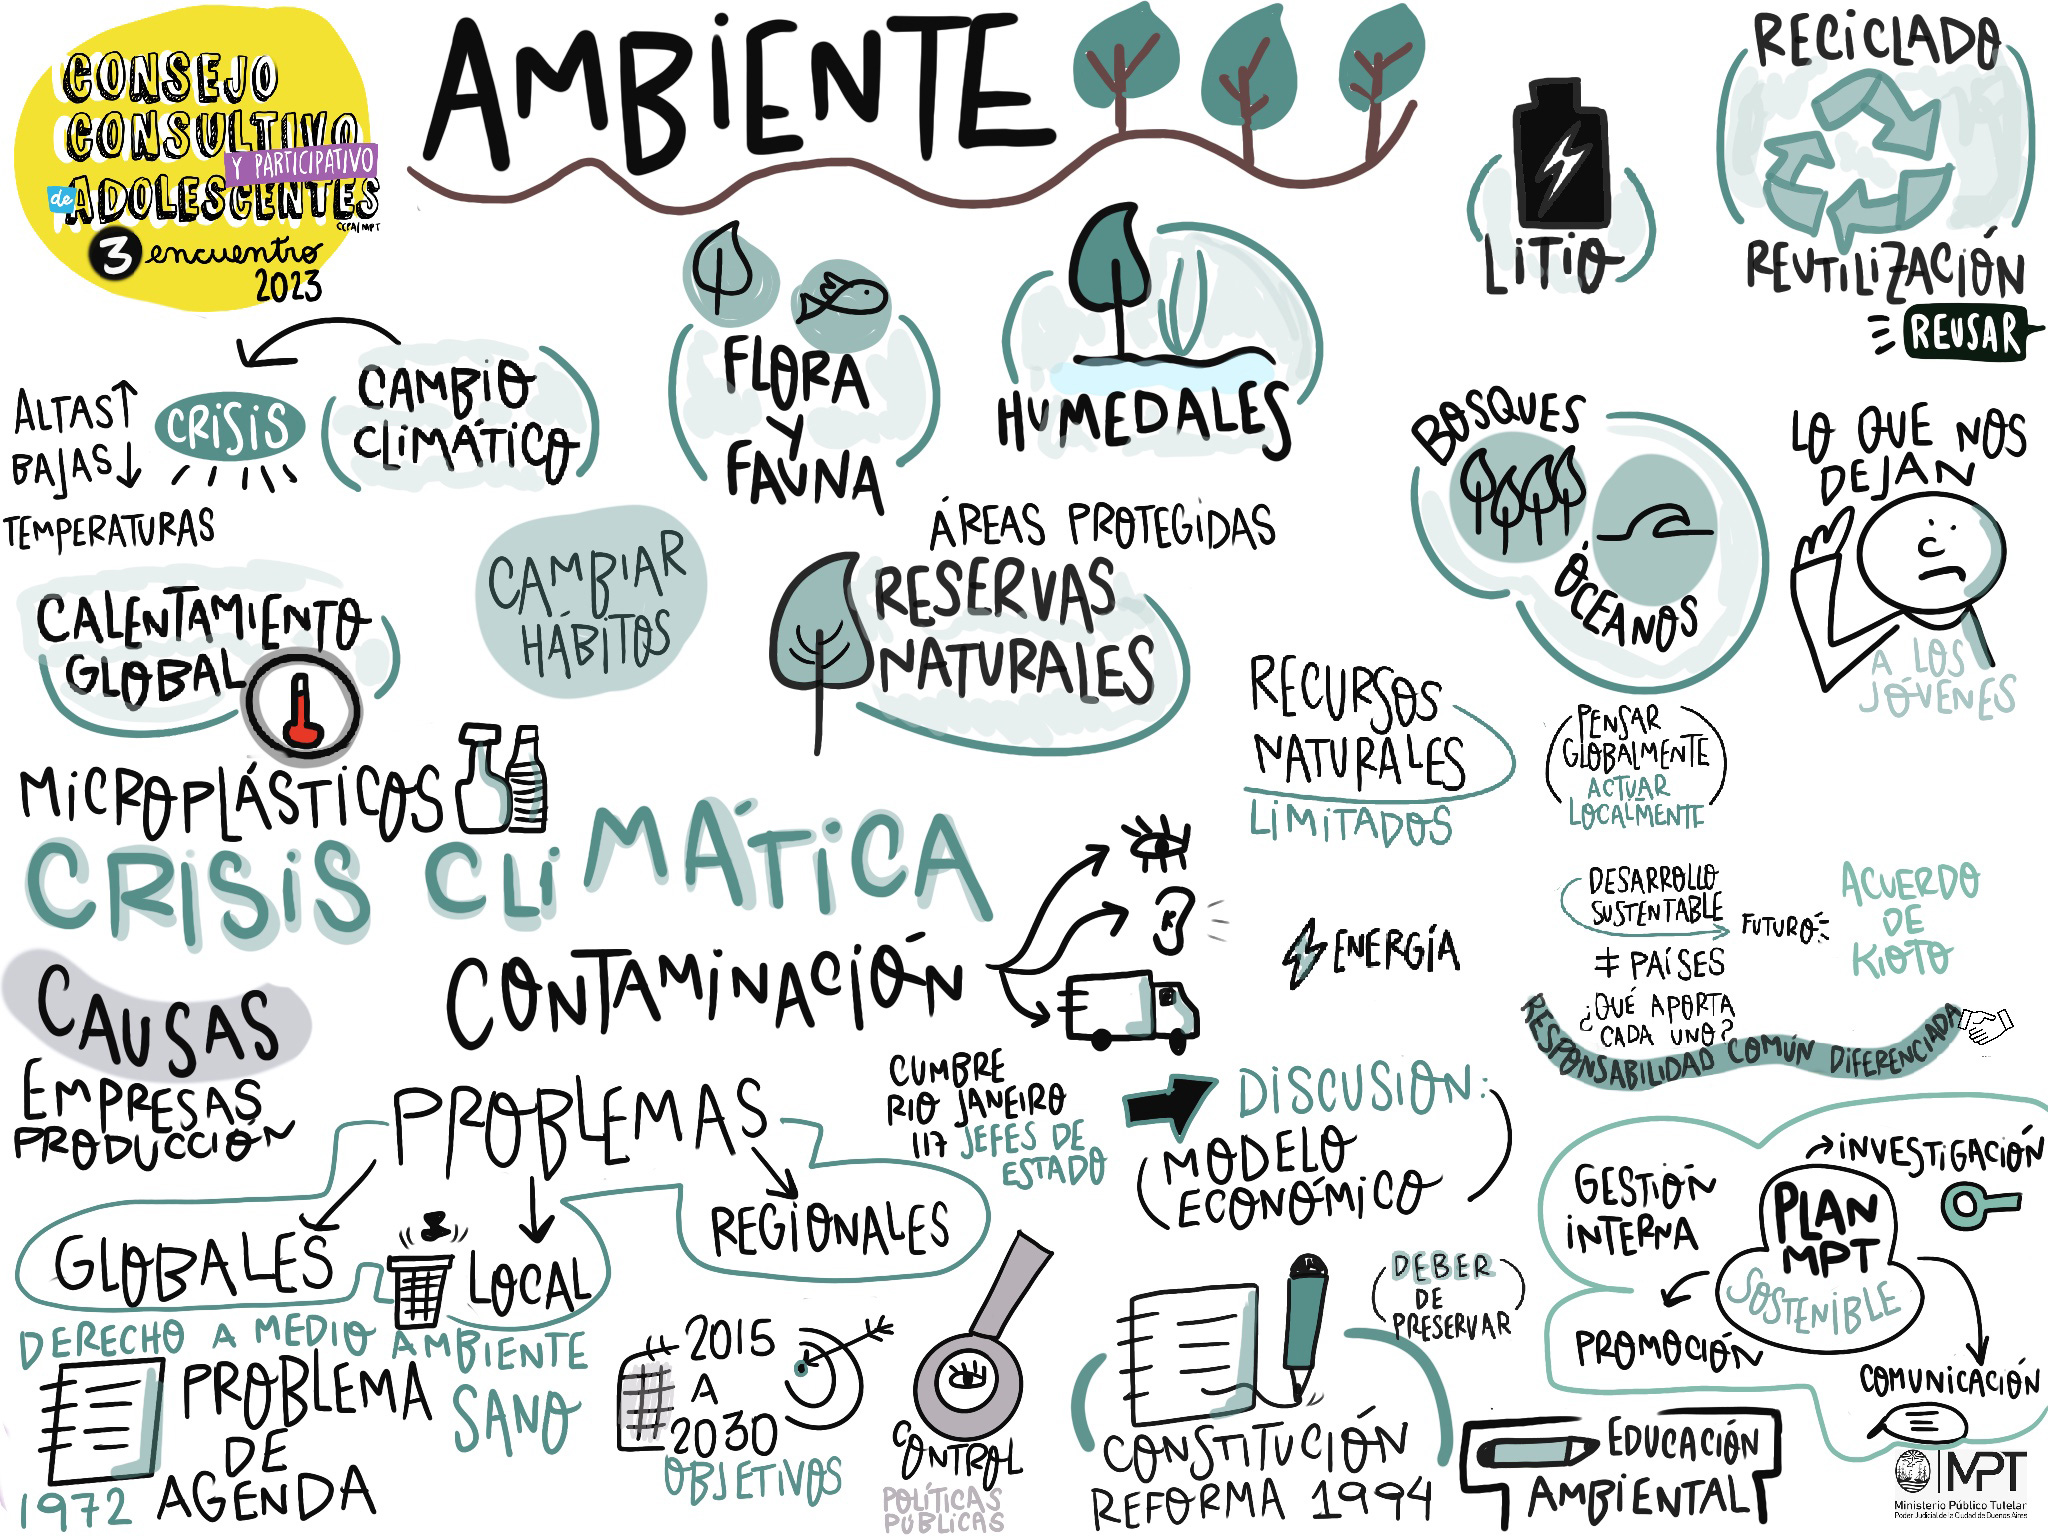 CONSEJO
CONSULTIVO
Y PARTICIPATIVO
de ADOLESCENTES
CCPA/MPT
3 encuentro
2023
AMBIENTE
LITIO
RECICLADO
REUTILIZACIÓN
REUSAR
ALTAS
BAJAS
TEMPERATURAS
CRISIS
CAMBIO
CLIMÁTICO
FLORA
Y
FAUNA
HUMEDALES
BOSQUES
ÓCEANOS
LO QUE NOS
DEJAN
A LOS
JÓVENES
CALENTAMIENTO
GLOBAL
CAMBIAR
HÁBITOS
ÁREAS PROTEGIDAS
RESERVAS
NATURALES
RECURSOS
NATURALES
LIMITADOS
PENSAR
GLOBALMENTE
ACTUAR
LOCALMENTE
MICROPLÁSTICOS
CRISIS CLIMÁTICA
CONTAMINACIÓN
ENERGÍA
DESARROLLO
SUSTENTABLE
FUTURO
≠ PAÍSES
¿QUÉ APORTA
CADA UNO?
ACUERDO
DE
KIOTO
RESPONSABILIDAD COMÚN DIFERENCIADA
CAUSAS
EMPRESAS
PRODUCCIÓN
PROBLEMAS
GLOBALES
LOCAL
REGIONALES
CUMBRE
RIO JANEIRO
117 JEFES DE
ESTADO
DISCUSIÓN:
MODELO
ECONÓMICO
GESTIÓN
INTERNA
INVESTIGACIÓN
PLAN
MPT
SOSTENIBLE
PROMOCIÓN
COMUNICACIÓN
DERECHO A MEDIO AMBIENTE
SANO
PROBLEMA
DE
AGENDA
1972
2015
A
2030
OBJETIVOS
CONTROL
POLÍTICAS
PÚBLICAS
DEBER
DE
PRESERVAR
CONSTITUCIÓN
REFORMA 1994
EDUCACIÓN
AMBIENTAL
MPT
Ministerio Público Tutelar
Poder Judicial de la Ciudad de Buenos Aires